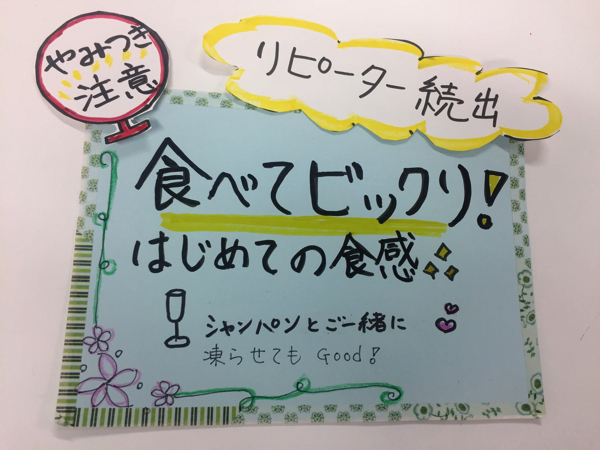 やみつき
注意
リピーター続出
食べてビックリ!
はじめての食感
シャンパンとご一緒に
凍らせてもGood!